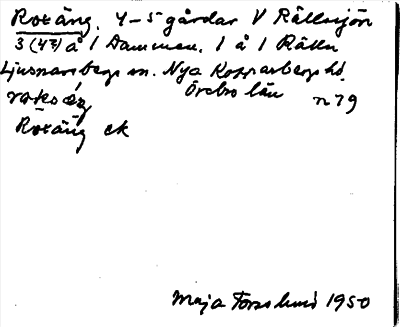 Roxäng. 4-5 gårdar V Rällsjön
3 (4?) å 1 Dammen. 1 å 1 Rälln
Ljusnarsbergs sn. Nya Kopparbergs hd.
Örebro län n 79
Roxäng ek
Maja Forslund 1950